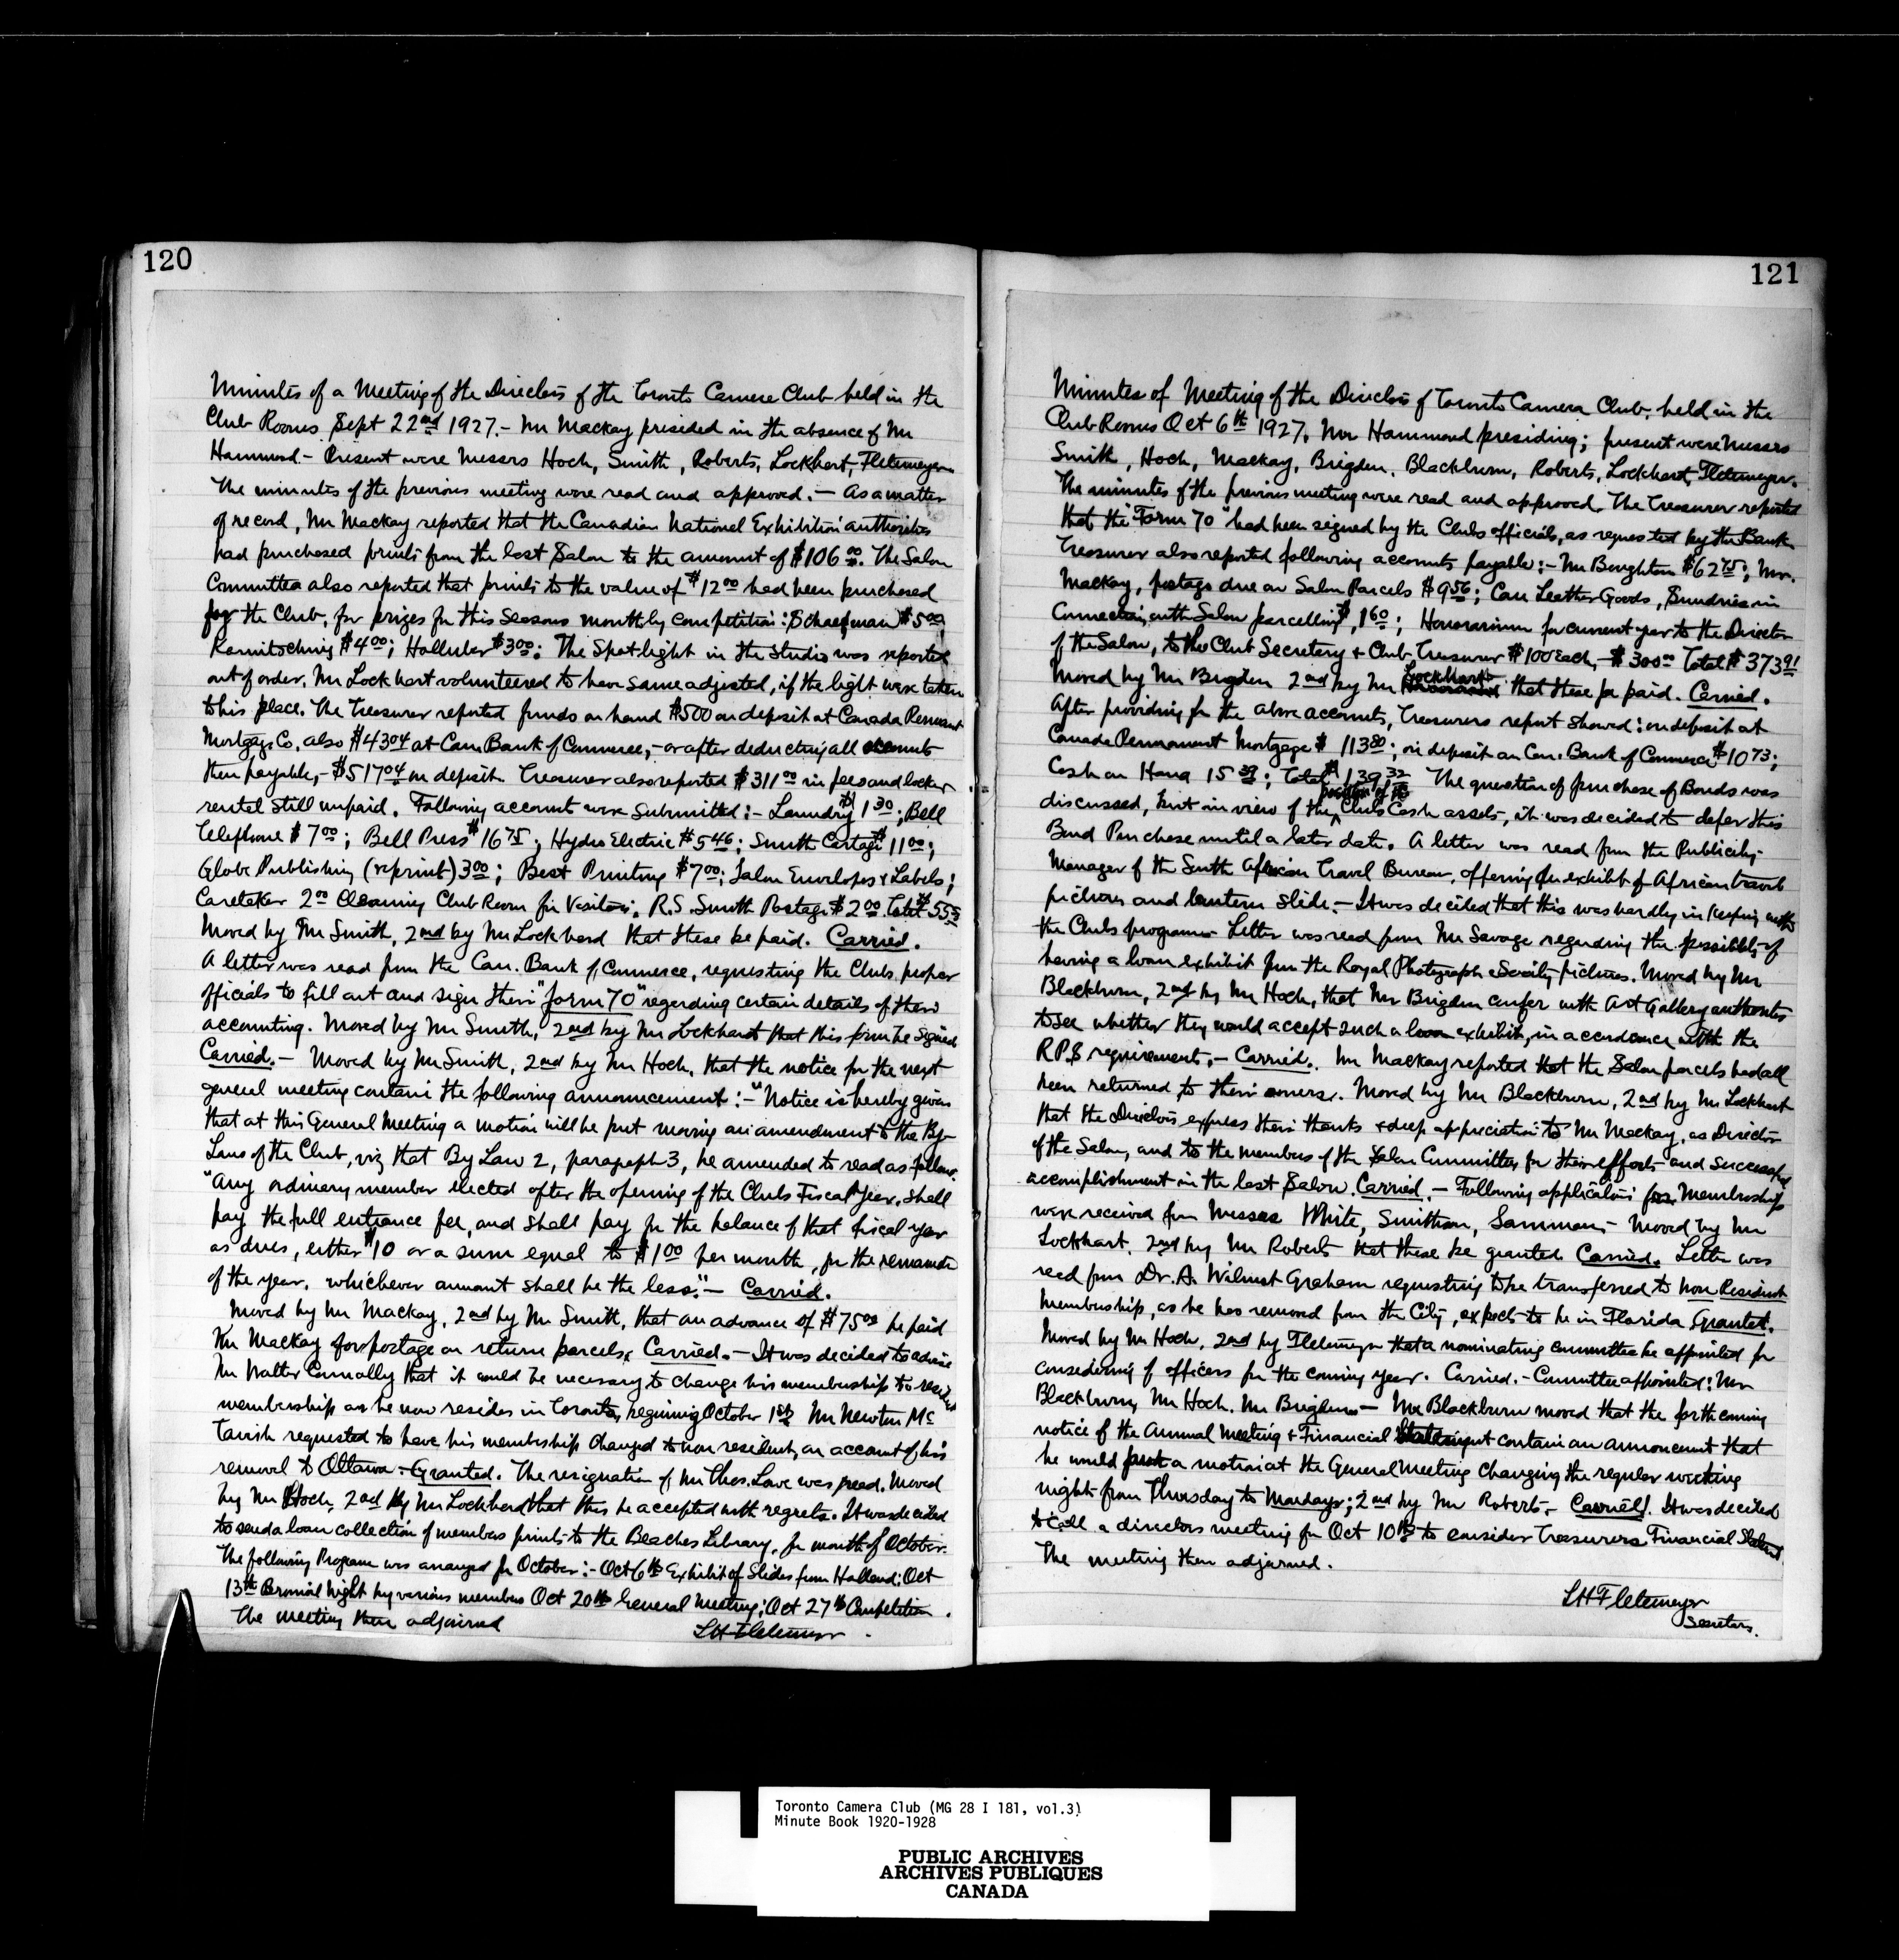 120
Minutes of a Meeting of the Directors of the Toronto Camera Club held in the
Club Rooms Sept 22nd 1927.- Mr Mackay presided in the absence of Mr
Hammond.- Present were Messrs Hoch, Smith, Roberts, Lockhart, Fletemeyer
The minutes of the previous meeting were read and approved.- As a matter
of record, Mr Mackay reported that the Canadian National Exhibition authorities
had purchased prints from the last Salon to the amount of $106 00. The Salon
Committee also reported that prints to the value of $12 00 had been purchased
for the Club, for prizes for this seasons monthly competition: $5 00;
$4 00; Holluber $3 00: The Spot-light in the studio was reported
out of order. Mr Lockhart volunteered to have same adjusted, if the light were taken
to his place. The Treasurer reported funds on hand $500 on deposit at Canada Permanent
Mortgage Co. also $43 04 at Can Bank of Commerce,- or after deducting all accounts
then payable,- $517 04 on deposit. Treasurer also reported $311 00 in fees and locker
rental still unpaid. Following account were submitted:- Laundry $1 30; Bell
Telephone $7 00; Bell Press $16 75; Hydro Electric $5 46; Smith Cartage $11 00;
Globe Publishing (reprint) 3 00; Best Printing $7 00; Salon Envelopes & Labels;
Caretaker 2 00 Cleaning Club Room for Visitors; R.S. Smith Postage $2 00 Total $55
Moved by Mr Smith, 2nd by Mr Lockhard that these be paid. Carried.
A letter was read from the Can. Bank of Commerce, requesting the Clubs proper
officials to fill out and sign their "form 70" regarding certain details of their
accounting. Moved by Mr Smith, 2nd by Mr Lockhardt that this form be signed
Carried.- Moved by Mr Smith, 2nd by Mr Hoch, that the notice for the next
general meeting contain the following announcement:- "Notice is hereby given
that at this General Meeting a motion will be put moving an amendment to the By-
Laws of the Club, viz that By Law 2, paragraph 3, be amended to read as follows.
"Any ordinary member elected after the opening of the Clubs Fiscal Year, shall
pay the full entrance fee, and shall pay for the balance of that fiscal year
as dues, either $10 or a sum equal to $1 00 per month, for the remainder
of the year, whichever amount shall be the less."- Carried.
Moved by Mr Mackay, 2nd by Mr Smith, that an advance of $75 00 be paid
Mr Mackay for postage on return parcels, Carried.- It was decided to advise
Mr Walter Connolly that it would be necessary to change his membership to resident
membership as he now resides in Toronto, beginning October 1st. Mr Newton Mc
Tavish requested to have his membership changed to non resident, on account of his
removal to Ottawa.- Granted. The resignation of Mr Thos. Lowe was read. Moved
by Mr Hoch, 2nd by Mr Lockhard that this be accepted with regrets. It was decided
to send a loan collection of members prints to the Beaches Library, for month of October.
The following Program was arranged for October:- Oct 6th Exhibit of Slides from Holland; Oct
13th Bromoil Night by various members Oct 20th General Meeting; Oct 27th Competition.
The meeting then adjourned
LH Fletemeyer
121
Minutes of Meeting of the Directors of Toronto Camera Club, held in the
Club Rooms Oct 6th 1927. Mr Hammond presiding; present were Messrs
Smith, Hoch, Mackay, Brigden, Blackburn, Roberts, Lockhart, Fletemeyer.
The minutes of the previous meeting were read and approved. The Treasurer reported
that the "Form 70" had been signed by the Clubs officials, as requested by the Bank
Treasurer also reported following accounts payable:- Mr Boughton $62 75; Mr.
Mackay, postage due on Salon Parcels $9 56; Can Leather Goods, Sundries in
Connection with Salon parcelling $1 60; Honorarium for current year to the Director
of the Salon, to the Club Secretary & Club Treasurer $100 Each,- $300 00 Total $373 91
Moved by Mr Brigden 2nd by Mr Lockhart that these be paid. Carried.
After providing for the above accounts, Treasurers report showed: on deposit at
Canada Permanent Mortgage $113 80; on deposit on Can. Bank of Commerce $10 73;
Cash on Hand 15 39; Total $139 32 The question of purchase of Bonds was
discussed, but in view of the position of the Clubs Cash assets, it was decided to defer this
Bond Purchase until a later date. A letter was read from the Publicity-
Manager of the South African Travel Bureau, offering an exhibit of African travel
pictures and lantern slide.- It was decided that this was hardly in keeping with
the Clubs program- Letter was read from Mr Savage regarding the possibility of
having a loan exhibit from the Royal Photographic Society pictures. Moved by Mr
Blackburn, 2nd by Mr Hoch, that Mr Brigden confer with Art Gallery authorities
to see whether they would accept such a loan exhibit, in accordance with the
RPS requirements.- Carried. Mr Mackay reported that the Salon parcels had all
been returned to their owners. Moved by Mr Blackburn, 2nd by Mr Lockhart
that the Directors express their thanks & deep appreciation to Mr Mackay, as Director
of the Salon, and to the members of the Salon Committee, for their efforts and successful
accomplishment in the last Salon. Carried.- Following applications for Membership
were received from Messrs White, Smithson, Sammon,- Moved by Mr
Lockhart, 2nd by Mr Roberts that these be granted Carried. Letter was
read from Dr. A. Wilmot Graham requesting to be transferred to Non Resident
Membership, as he has removed from the City, expects to be in Florida Granted.
Moved by Mr Hoch, 2nd by Fletemeyer that a nominating committee be appointed for
considering of officers for the coming year. Carried.- Committee appointed: Mr
Blackburn, Mr Hoch, Mr Brigden- Mr Blackburn moved that the forthcoming
notice of the Annual Meeting & Financial Statement contain an announcement that
he would put a motion at the General Meeting changing the regular meeting
night from Thursday to Mondays; 2nd by Mr Roberts.- Carried. It was decided
to call a directors meeting for Oct 10th to consider Treasurers Financial Statement
The meeting then adjourned.
LH Fletemeyer
Secretary.
Toronto Camera Club (MG 28 I 181, vol.3)
Minute Book 1920-1928
PUBLIC ARCHIVES
ARCHIVES PUBLIQUES
CANADA